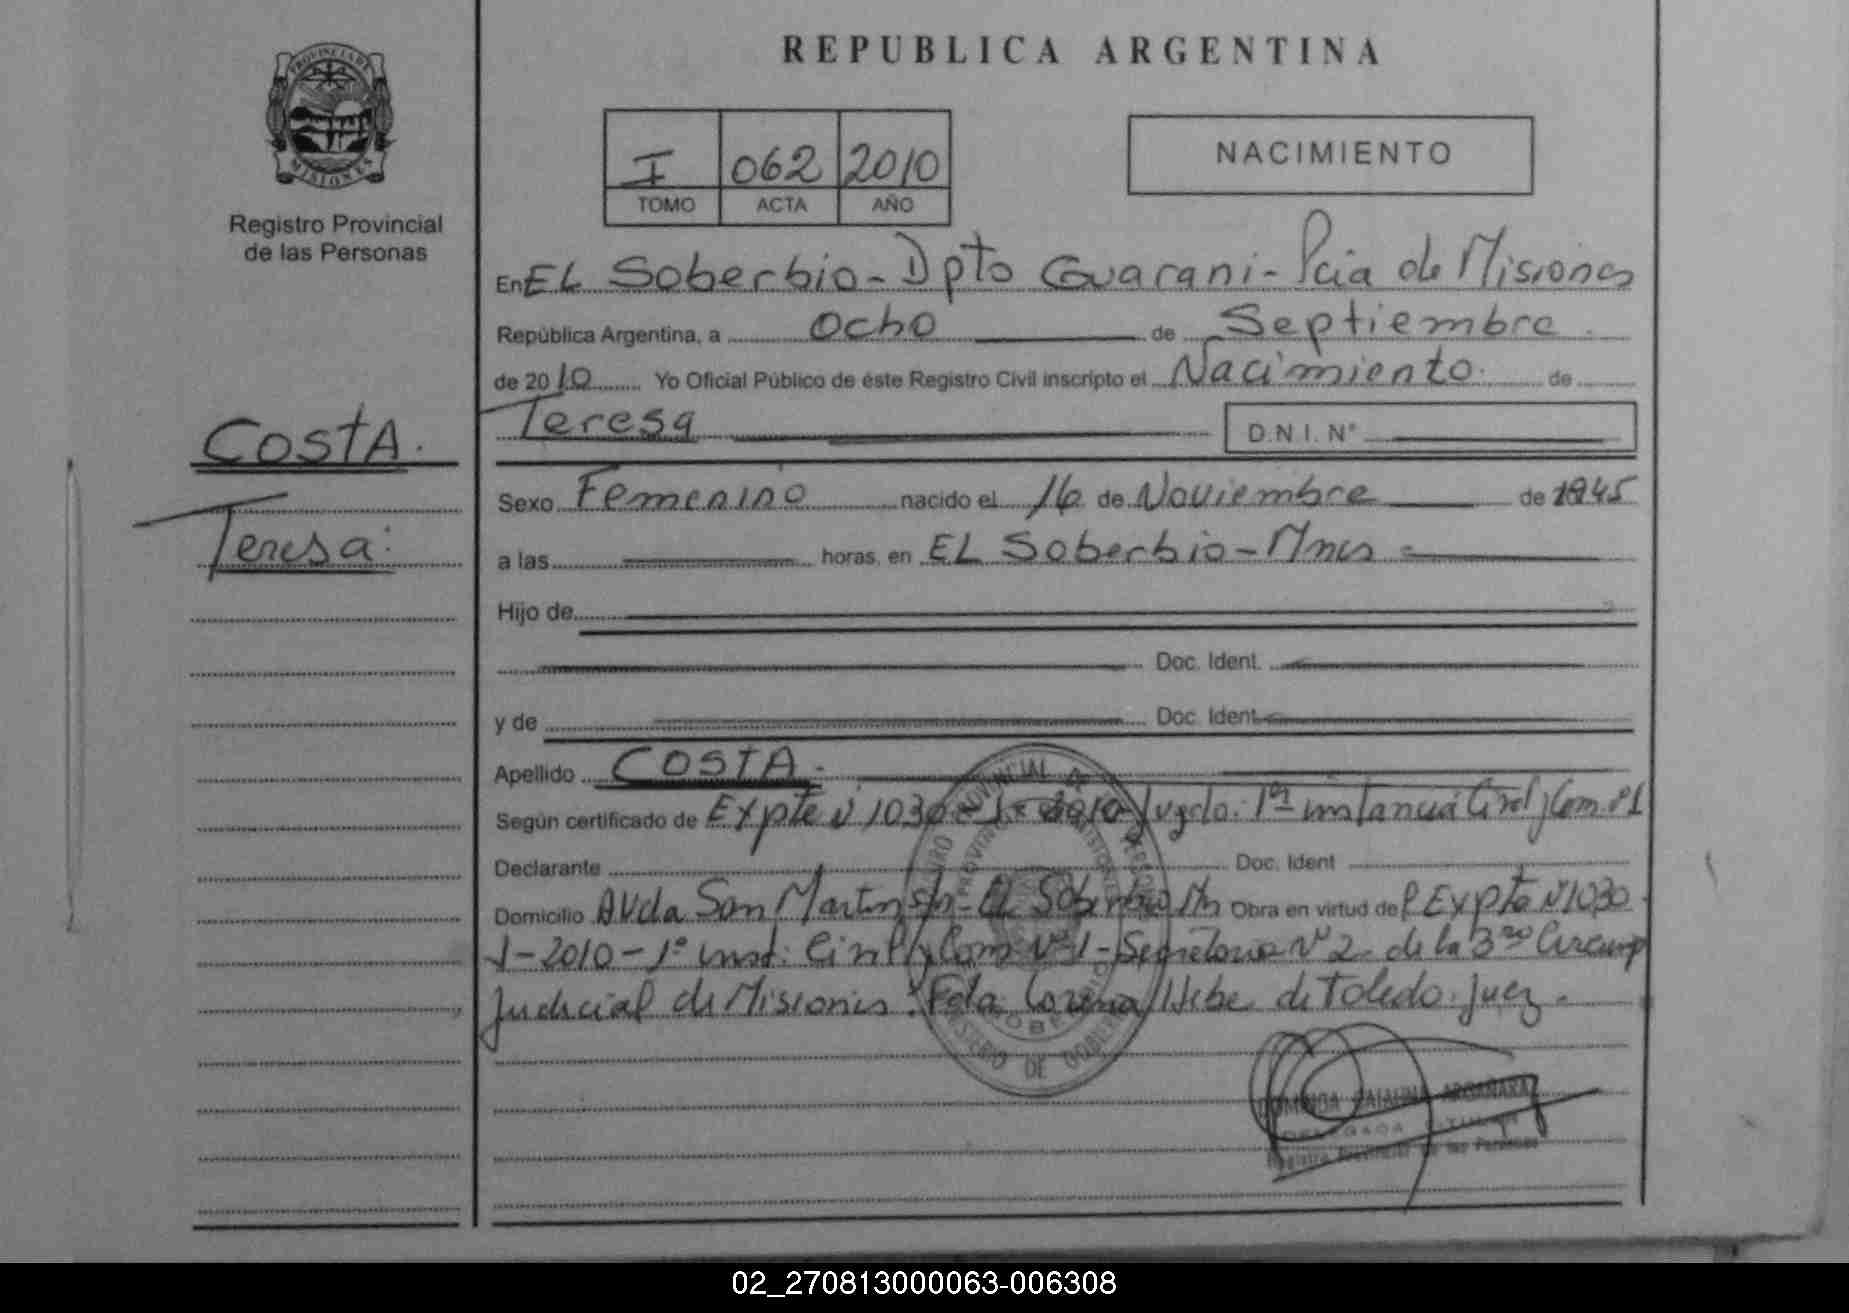 REPUBLICA ARGENTINA
PROVINCIA DE
MISIONES
Registro Provincial
de las Personas
I 062 2010
TOMO ACTA AÑO
NACIMIENTO
En EL Soberbio - Dpto Guarani - Pcia de Misiones
República Argentina, a ocho de Septiembre
de 2010 Yo Oficial Público de éste Registro Civil inscripto el Nacimiento de
Teresa D.N.I. N°
COSTA.
Teresa:
Sexo Femenino nacido el 16 de Noviembre de 1945
a las horas, en EL Soberbio - Mnes
Hijo de
Doc. Ident.
y de Doc. Ident.
Apellido COSTA.
Según certificado de Expte N 1030 - 1 - 2010 - Juzgdo. 1ª instancia Civil y Com. nº 1
Declarante Doc. Ident
Domicilio AVda San Martin s/n - EL Soberbio Mn Obra en virtud de Expte Nº 1030
1 - 2010 - 1º inst. Civil y Com Nº 1 - Secretaria Nº 2 de la 3ra Circunp
Judicial de Misiones. Fda. Lorena Hebe de Toledo. Juez.
MINISTERIO DE GOBIERNO
Registro Provincial de las Personas
02_270813000063-006308